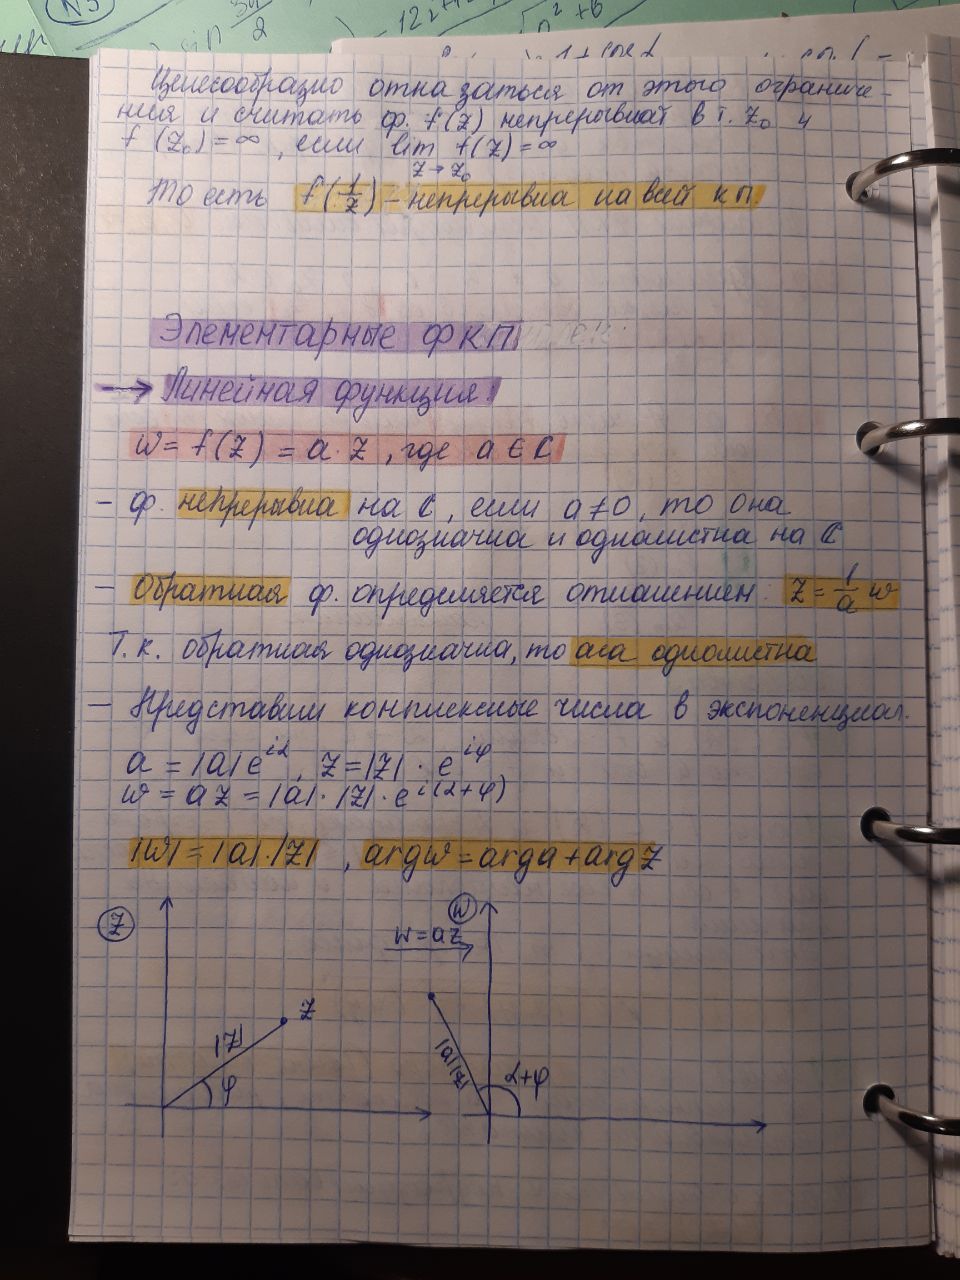 Целесообразно отказаться от этого ограниче-
ния и считать ф. f(z) непрерывной в т. z₀ и
f(z₀) = ∞, если lim f(z) = ∞
z→z₀
То есть f(1/z) – непрерывна на всей к.п.
Элементарные ФКП
→ Линейная функция:
w = f(z) = a·z, где a ∈ ℂ
– ф. непрерывна на ℂ, если a ≠ 0, то она
однозначна и однолистна на ℂ
– Обратная ф. определяется отношением: z = 1/a w
Т.к. обратная однозначна, то она однолистна
– Представим комплексные числа в экспоненциал.
a = |a|e^{iα}, z = |z|·e^{iφ}
w = az = |a|·|z|·e^{i(α+φ)}
|w| = |a|·|z|, arg w = arg a + arg z
z
w
w = az
z
|z|
φ
|a||z|
α+φ